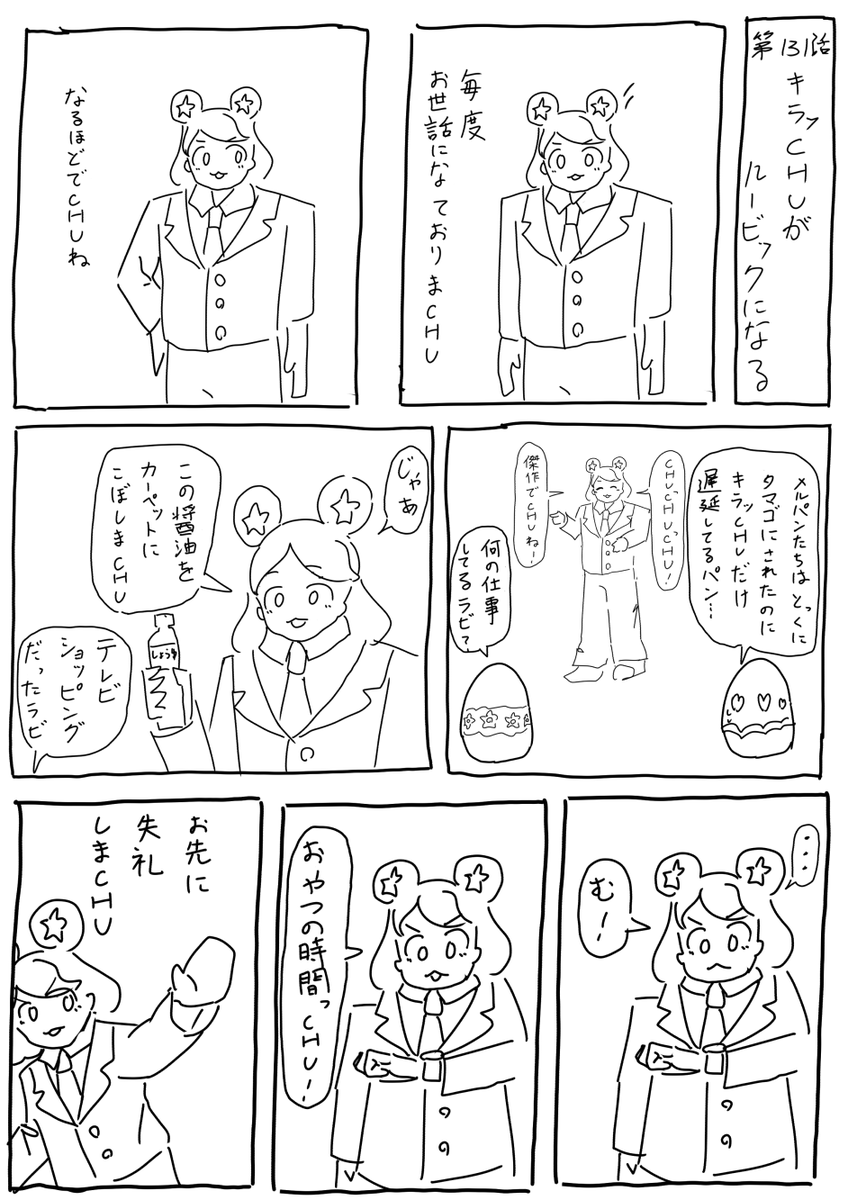 第131話
キラッCHUが
ルービックになる
毎度
お世話になておりまCHU
なるほどでCHUね
メルパンたちはとっくに
タマゴにされたのに
キラッCHUだけ
遅延してるパン…
CHUっCHUっCHU!
傑作でCHUねー
何の仕事
してるラビ?
じゃあ
この醤油を
カーペットに
こぼしまCHU
しょうゆ
テレビ
ショッピング
だったラビ
・・・
むー
おやつの時間っCHU!
お先に
失礼
しまCHU